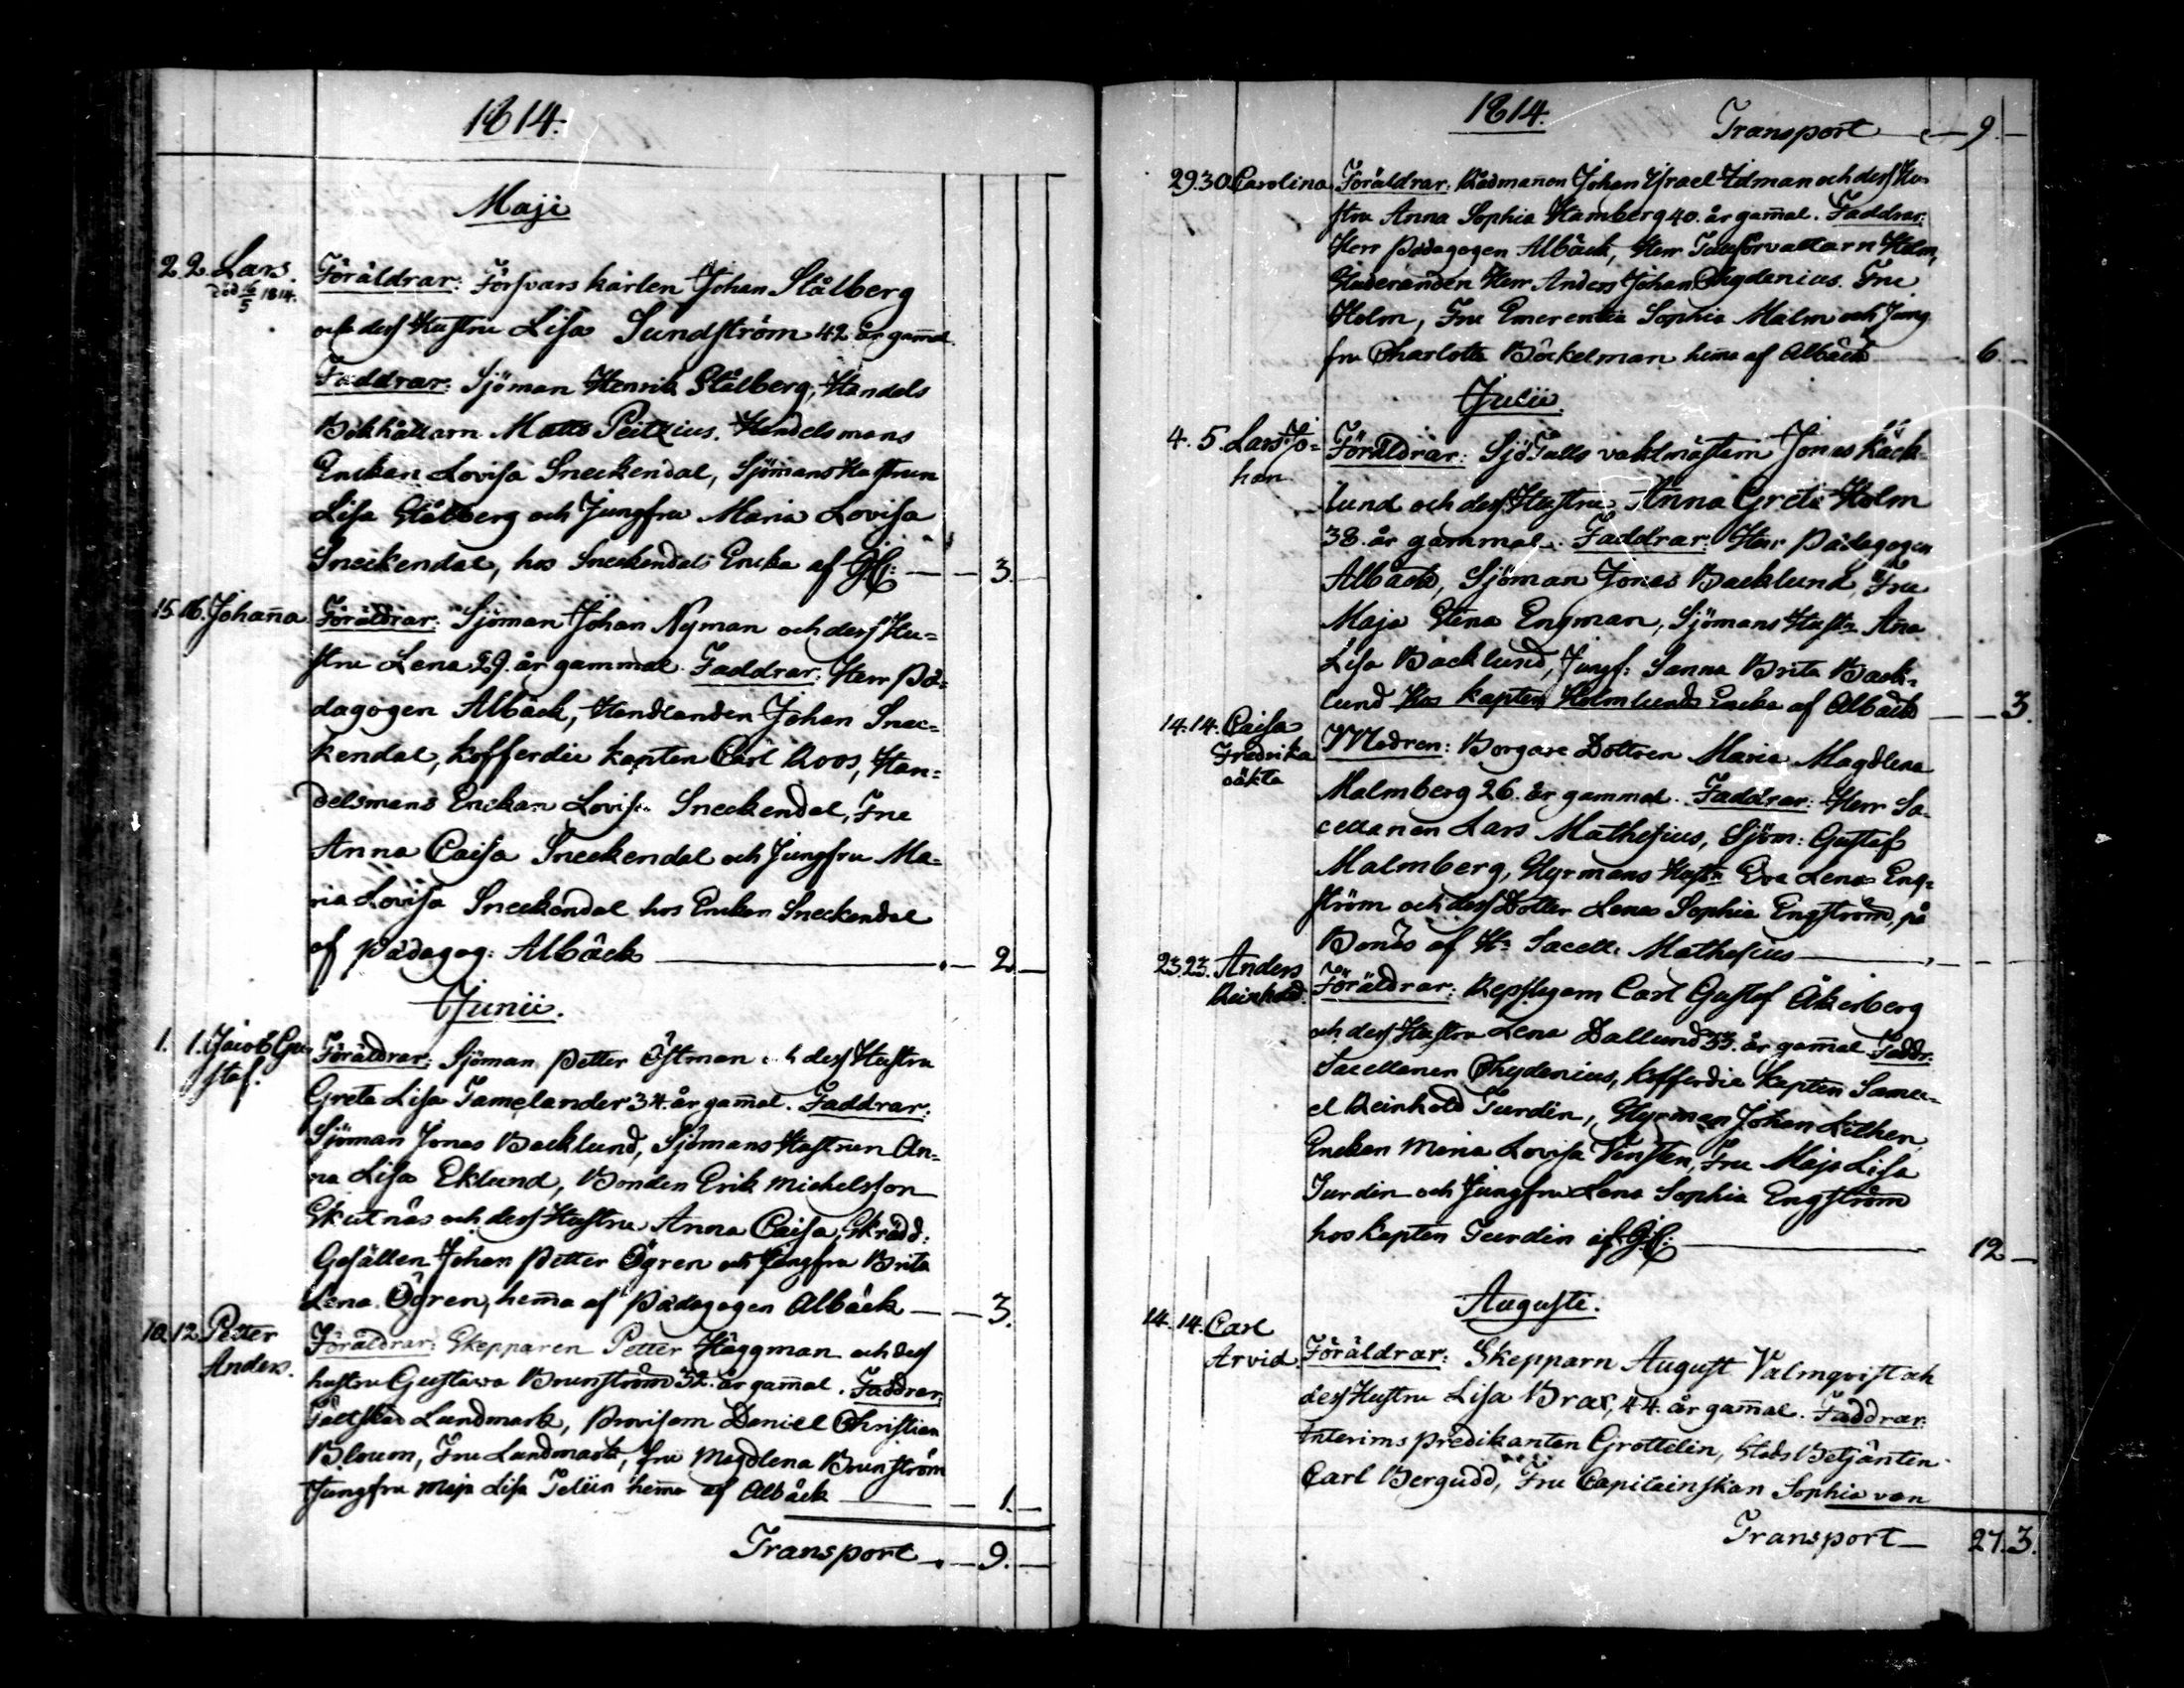 1814.
Maji
2. 2. Lars. Föräldrar: Försvars karlen Johan Stålberg
död 16/5 1814.
och dess Hustru Lisa Sundström 42 år gam̄al.
Faddrar: Sjöman Henrik Stålberg, Handels
Bokhållarn Matts Peitzius. Handelsmans
Enckan Lovisa Sneckendal, Sjömans Hustrun
Lisa Stålberg och Jungfru Maria Lovisa
Sneckendal, hos Sneckendals Encka af — 3.
15. 16. Johan̄a Föräldrar: Sjöman Johan Nyman och dess Hu=
stru Lena 29. år gammal. Faddrar: Herr Pä=
dagogen Albäck, Handlanden Johan Snec=
kendal, Kofferdie kapten Carl Roos, Han=
delsmans Enckan Lovisa Sneckendal, Fru
Anna Caisa Sneckendal och Jungfru Ma=
ria Lovisa Sneckendal hos Enckan Sneckendal
af Pädagog: Albäck — 2. —
Junii.
1. 1. Jacob Gu= Föräldrar: Sjöman Petter Östman och dess Hustru
staf.
Greta Lisa Tamelander 34. år gam̄al. Faddrar:
Sjöman Jonas Backlund, Sjömans Hustrun An=
na Lisa Eklund, Bonden Erik Michelsson
Skutnäs och dess Hustru Anna Caisa, Skrädd:
Gesällen Johan Petter Ögren och Jungfru Brita
Lena Ögren, hem̄a af Pädagogen Albäck — 3.
10. 12. Petter Föräldrar: Skepparen Petter Häggman och dess
Anders.
hustru Gustava Brunström 32. år gam̄al. Faddrar:
Fältskär Lundmark, Provisorn Daniel Christian
Bloum, Fru Lundmark, fru Magdlena Brunström
Jungfru Maja Lisa Telin hem̄a af Albäck — 1. —
Transport — 9. —
1814.
Transport — 9. —
29. 30. Carolina Föräldrar: Rådman̄en Johan Israel Idman och dess Hu=
stru Anna Sophia Hamberg 40. år gam̄al. Faddrar:
Herr Pädagogen Albäck, Herr Tullförvaltarn Holm,
Studeranden Herr Anders Johan Chydenius. Fru
Holm, Fru Emerentia Sophia Malm och Jung
fru Charlotta Böckelman hem̄a af Albäck — 6. —
Julii.
4. 5. Lars Jo= Föräldrar: SjöTulls vaktmästarn Jonas Käck=
han
lund och dess Hustru Anna Greta Holm
38. år gammal. Faddrar: Herr Pädagogen
Albäck, Sjöman Jonas Backlund, Fru
Maja Stena Engman, Sjömans Hustr. An̄a
Lisa Backlund, Jungf: Sanna Brita Back=
lund Hos kapten Holmlunds Encka af Albäck — 3.
14. 14. Caisa Modren: Borgare Dottren Maria Magdlena
Fredrika
oäkta
Malmberg 26. år gammal. Faddrar: Herr Sa=
cellanen Lars Mathesius, Sjöm: Gustaf
Malmberg, Styrmans Hustr. Eva Lena Eng=
ström och dess Dotter Lena Sophia Engström, på
Bonäs af Hr Sacell: Mathesius —
23. 23. Anders Föräldrar: Repslagarn Carl Gustaf Åkerberg
Reinhold.
och dess Hustru Lena Dallund 33. år gam̄al. Faddr:
Sacellanen Chydenius, Kofferdie kapten Samu=
el Reinhold Turdin, Styrman Johan Lithen,
Enckan Maria Lovisa Vinsten, Fru Maja Lisa
Turdin och Jungfru Lena Sophia Engström
hos kapten Turdin af — 12 —
Augusti.
14. 14. Carl Föräldrar: Skepparn August Valmqvist och
Arvid
dess Hustru Lisa Brax, 44. år gam̄al. Faddrar:
Interims predikanten Grottelin, Stads Betjänten
Carl Bergudd, Fru Capitainskan Sophia von
Transport — 27. 3.